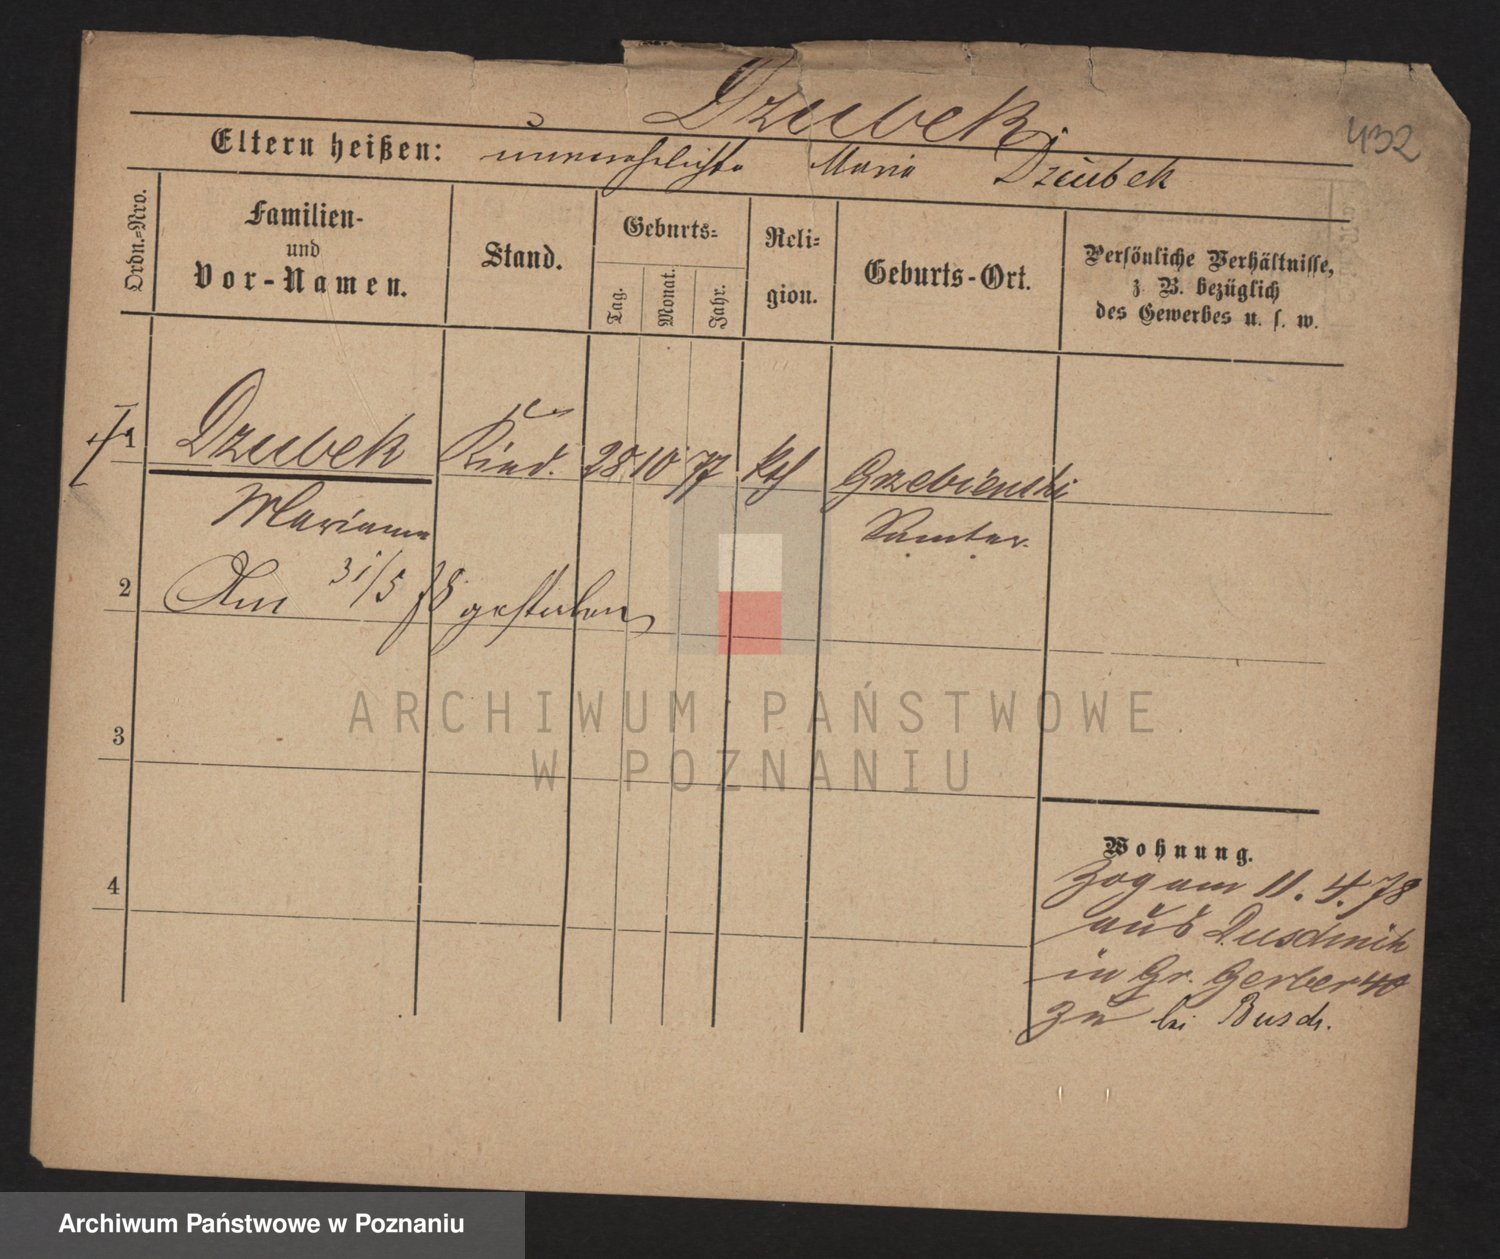 Dzubek.
432
Eltern heißen: unverehelichte Maria Dziubek
Ordn.-Nro.
Familien-
und
Vor-Namen.
Stand.
Geburts-
Tag.
Monat.
Jahr.
Reli-
gion.
Geburts-Ort.
Persönliche Verhältnisse,
z. B. bezüglich
des Gewerbes u. s. w.
1 Dzubek Kind. 28 10 77 kth Grzebienski
Marianna Samter.
2 Am 31/5 78 gestorben
3
4
Wohnung.
Zog am 11. 4. 78
aus Duschnik
in Gr. Gerber 40
zu bei Busch.
ARCHIWUM PAŃSTWOWE
W POZNANIU
Archiwum Państwowe w Poznaniu